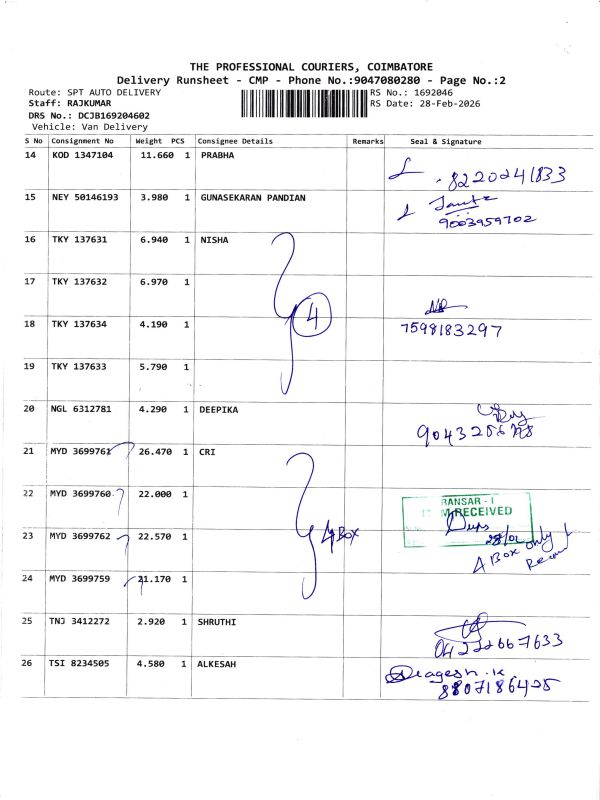 THE PROFESSIONAL COURIERS, COIMBATORE
Delivery Runsheet - CMP - Phone No.:9047080280 - Page No.:2
Route: SPT AUTO DELIVERY
RS No.: 1692046
Staff: RAJKUMAR
RS Date: 28-Feb-2026
DRS No.: DCJB169204602
Vehicle: Van Delivery
S No Consignment No Weight PCS Consignee Details Remarks Seal & Signature
14 KOD 1347104 11.660 1 PRABHA
8220241833
15 NEY 50146193 3.980 1 GUNASEKARAN PANDIAN
9003959702
16 TKY 137631 6.940 1 NISHA
17 TKY 137632 6.970 1
4
18 TKY 137634 4.190 1
7598183297
19 TKY 137633 5.790 1
20 NGL 6312781 4.290 1 DEEPIKA
21 MYD 3699761 26.470 1 CRI
22 MYD 3699760 22.000 1
RANSAR - I
RECEIVED
23 MYD 3699762 22.570 1
4 Box
4 Box only
24 MYD 3699759 21.170 1
25 TNJ 3412272 2.920 1 SHRUTHI
04222667633
26 TSI 8234505 4.580 1 ALKESAH
8807186425